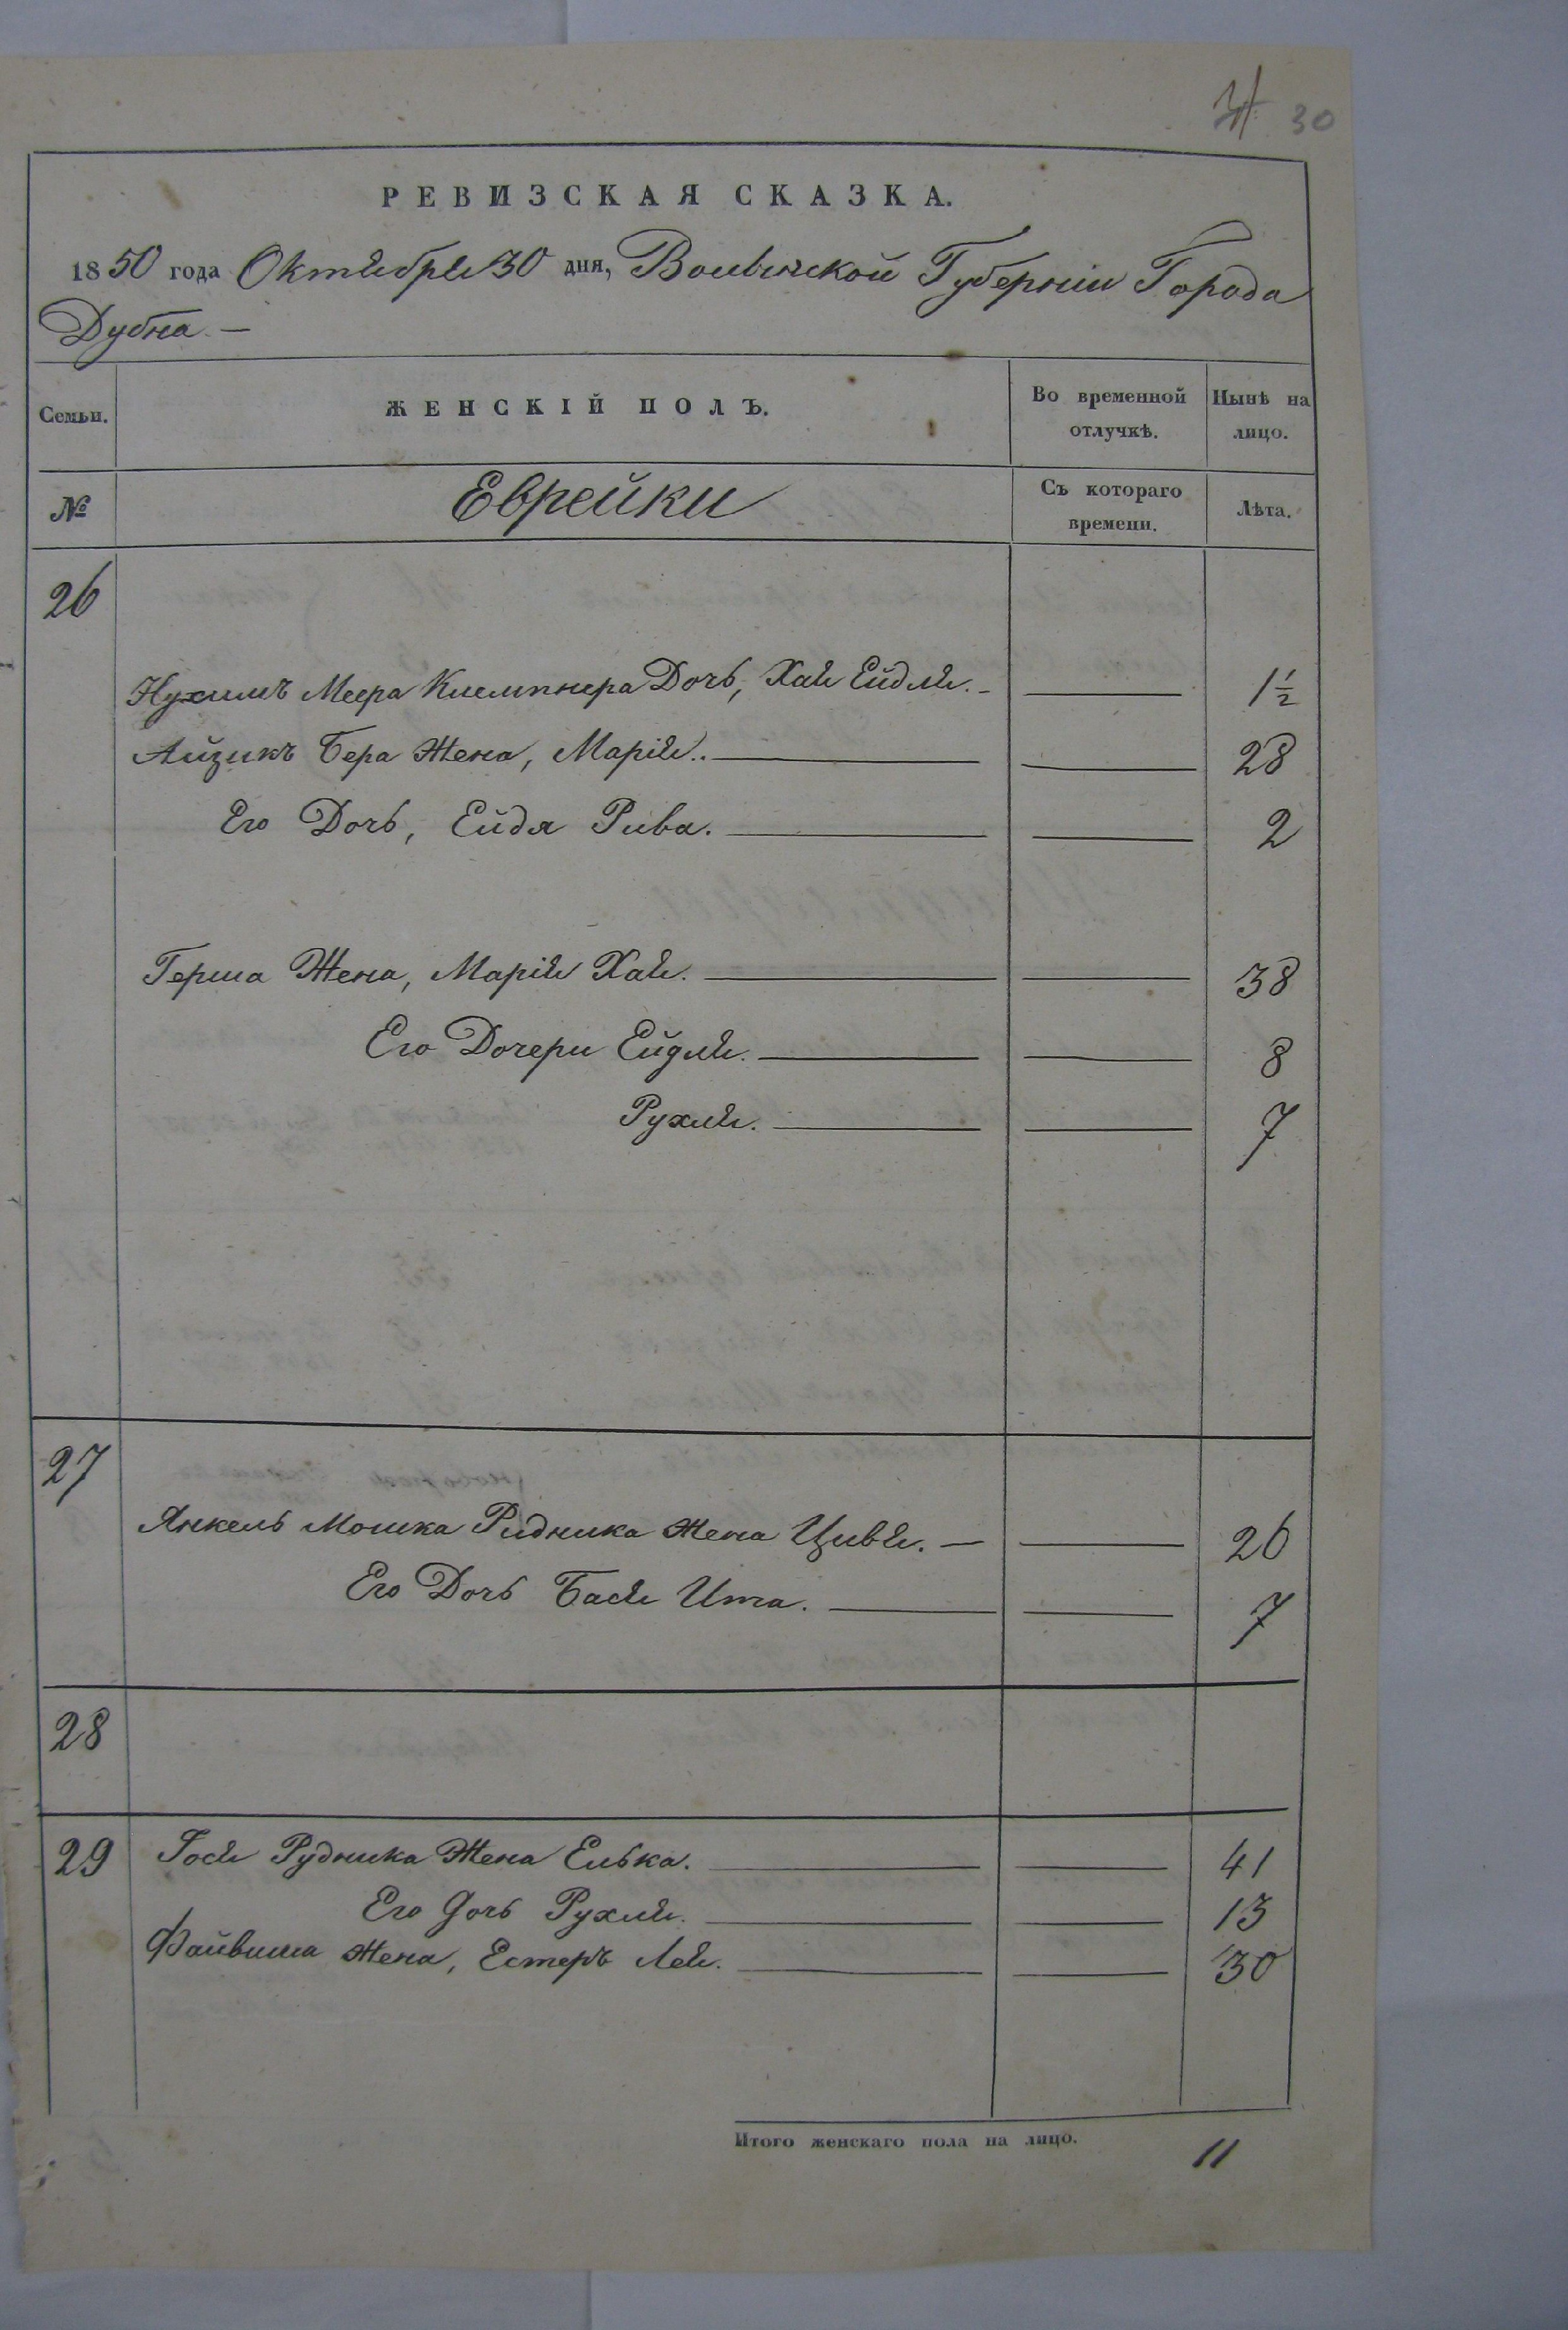 30
РЕВИЗСКАЯ СКАЗКА.
1850 года Октября 30 дня, Волынской Губерніи Города
Дубна —
Семьи. ЖЕНСКІЙ ПОЛЪ. Во временной отлучкѣ. Нынѣ на лицо.
№ Еврейки Съ котораго времени. Лѣта.
26
Нухимъ Меера Клемпнера Дочь, Хая Ейдля. — 1½
Айзикъ Бера Жена, Марія. 28
Его Дочь, Ейдя Рива. 2
Герша Жена, Марія Хая. 38
Его Дочери Ейдля. 8
Рухля. 7
27
Янкель Мошка Ридника Жена Цивя. — 26
Его Дочь Бася Ита. 7
28
29 Іося Рудника Жена Елька. 41
Его Дочь Рухля. 13
Файвиша Жена, Естеръ Лея. 30
Итого женскаго пола на лицо. 11